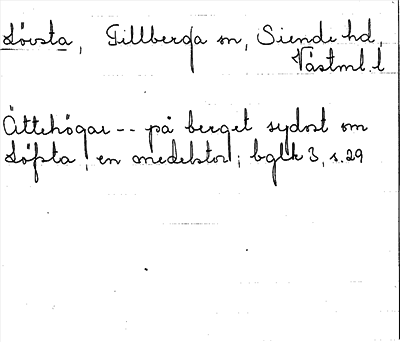 Lövsta, Gillberga sn, Siende hd,
Västml. l
Ättehögar -- på berget sydost om
Löfsta, en medelstor; bglk 3, s. 29